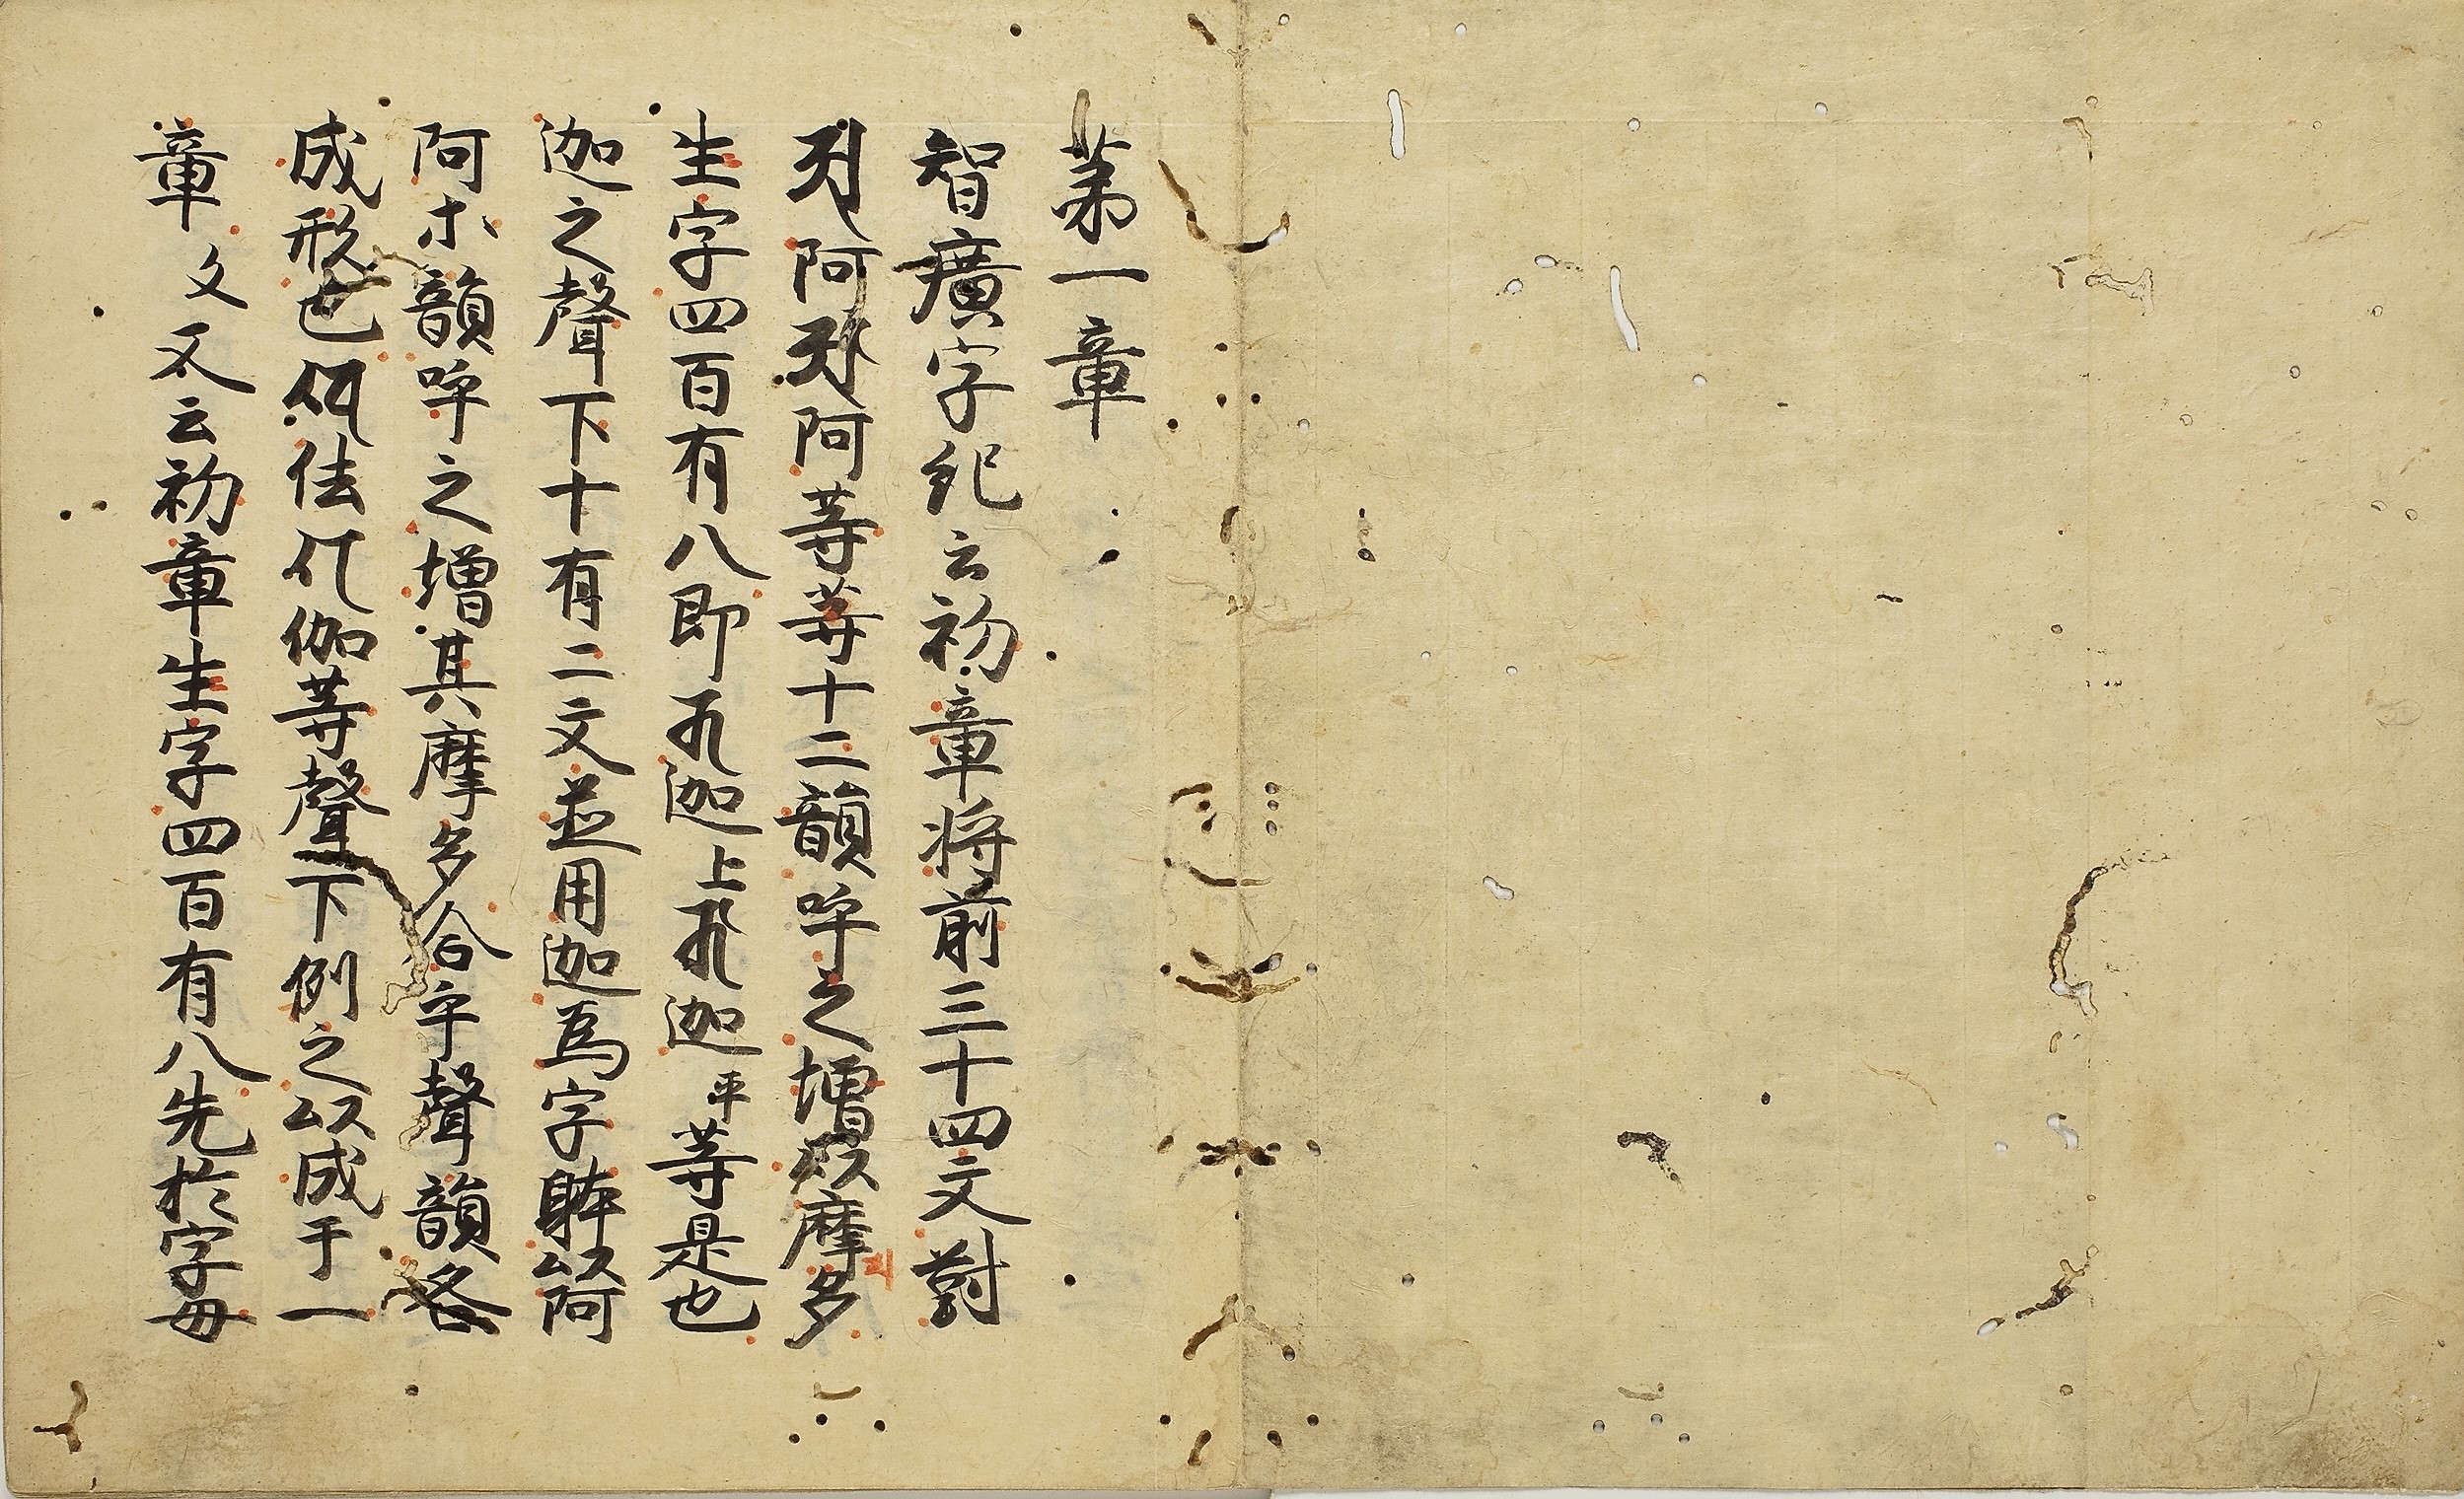 苐一章
智廣字紀云初章将前三十四文對
𑖀阿𑖁阿等等十二韻呼之増以摩多
生字四百有八即𑖎迦上𑖎𑖯迦平等是也
迦之聲下十有二文並用迦為字躰以阿
阿ホ韻呼之増其摩多合字聲韻各
成形也𑖏佉𑖐伽等聲下例之以成于一
章文又云初章生字四百有八先於字母